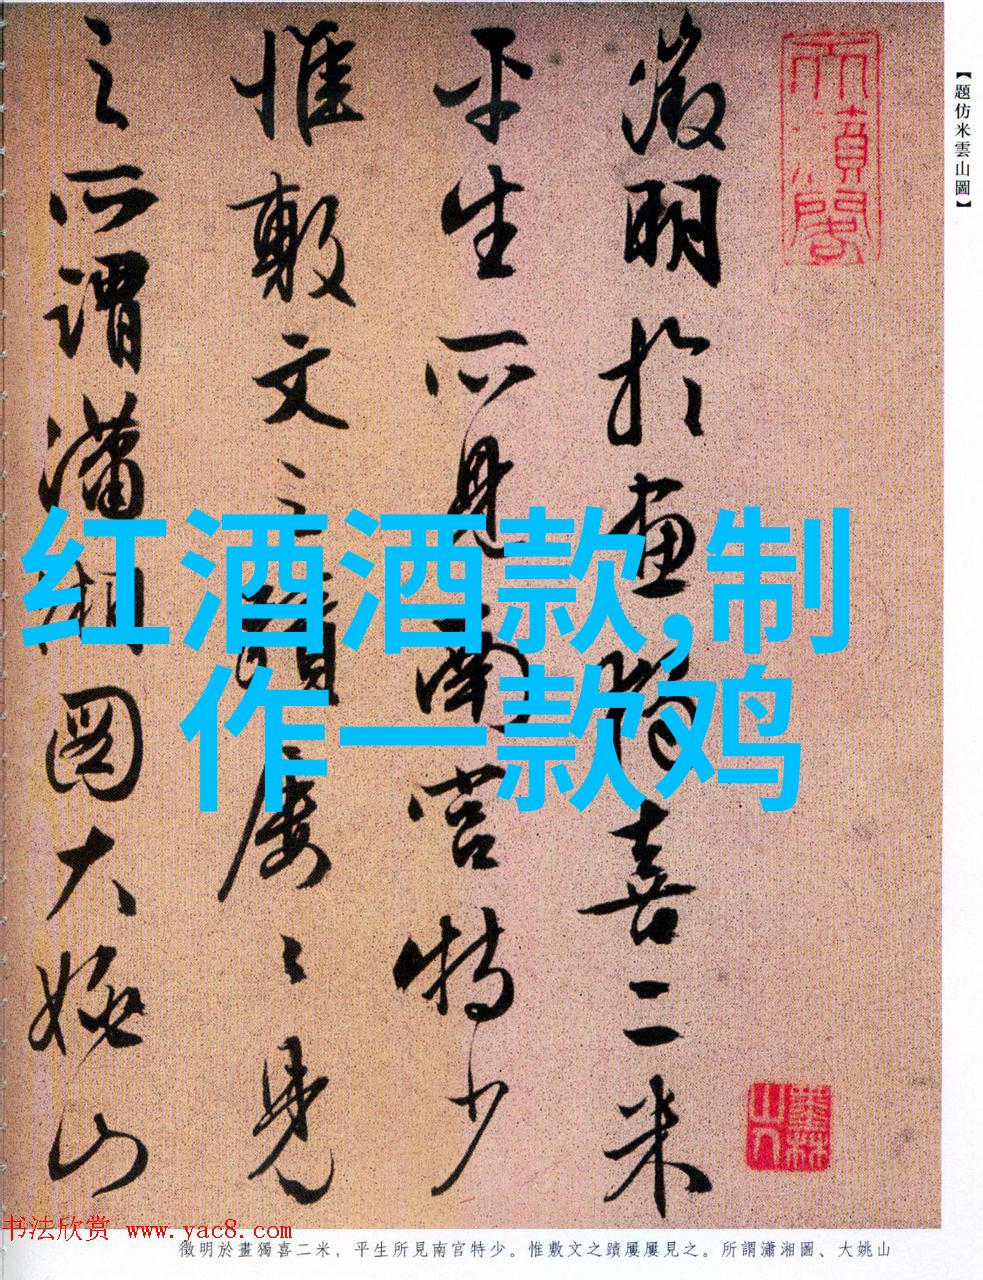 【題仿米雲山圖】
徵明於畫獨喜二米
平生所見南宫特少
惟敷文之蹟屢〻見
之所謂瀟湘圖大姚山
红酒酒款,制
作一款鸡
书法欣赏 www.yac8.com
徵明於畫獨喜二米，平生所見南宫特少。惟敷文之蹟屢屢見之。所謂瀟湘圖、大姚山